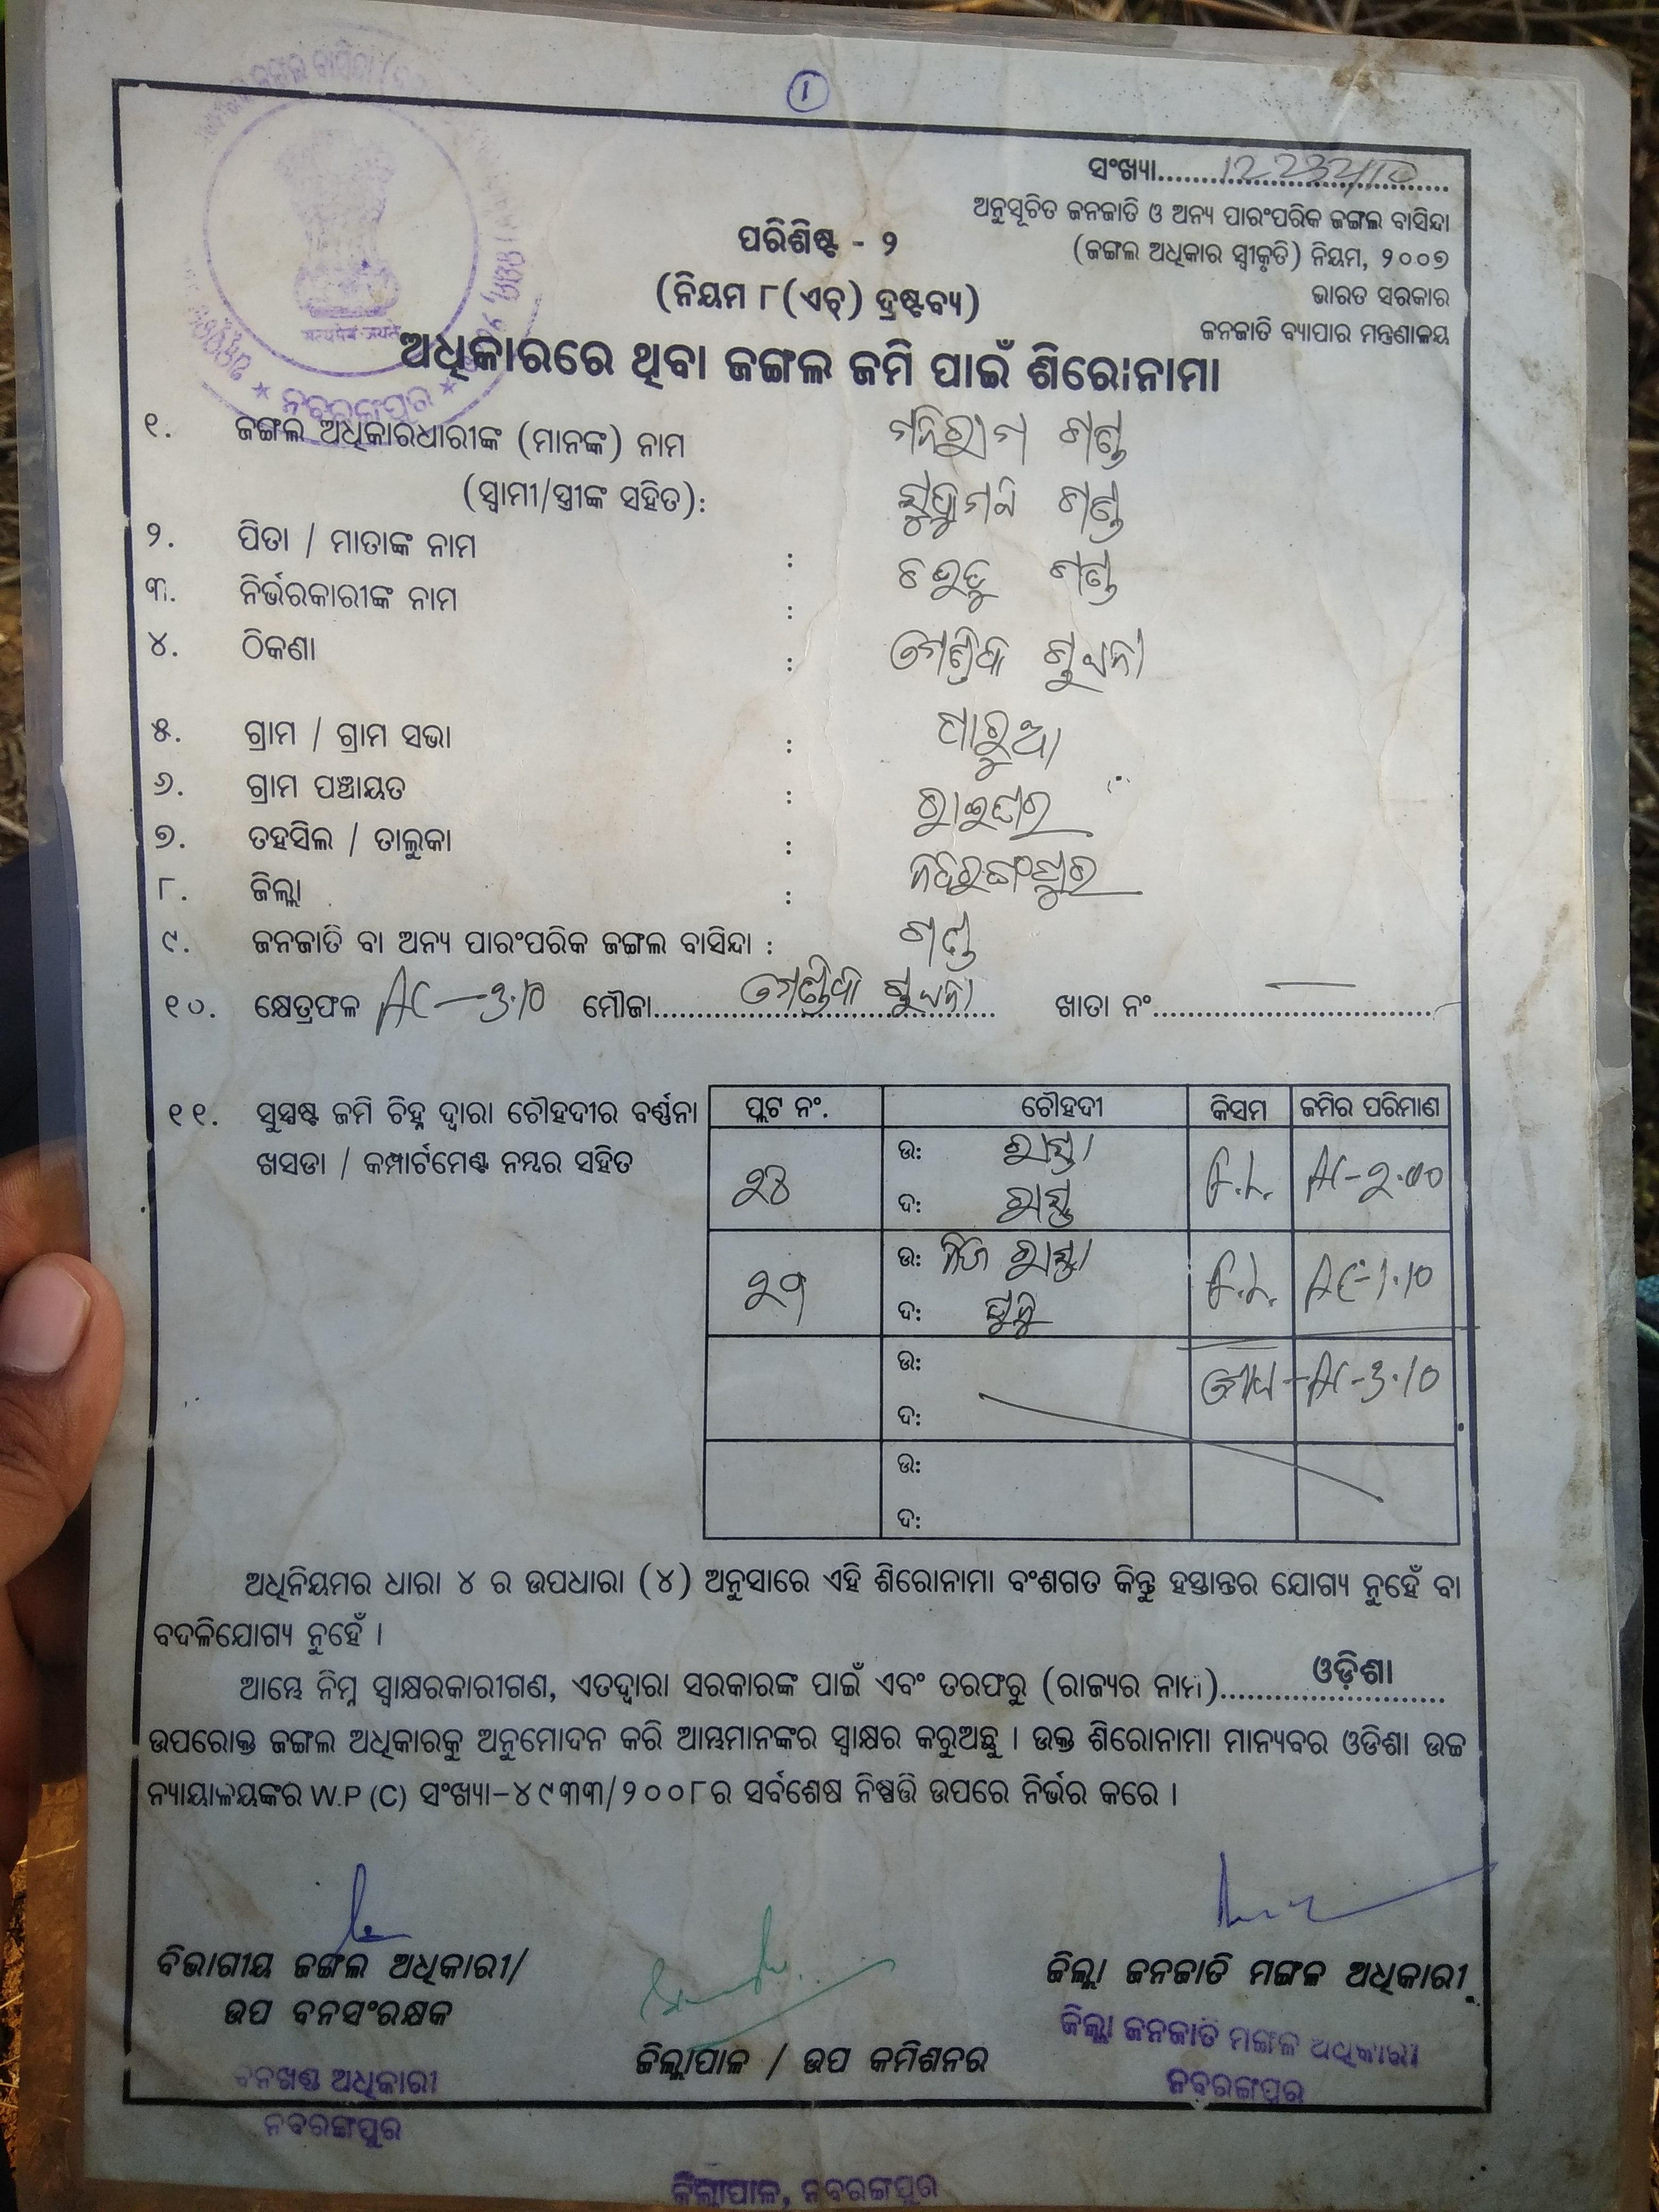 1
ସଂଖ୍ୟା.......12232/10
ଅନୁସୂଚିତ ଜନଜାତି ଓ ଅନ୍ୟ ପାରଂପରିକ ଜଙ୍ଗଲ ବାସିନ୍ଦା
(ଜଙ୍ଗଲ ଅଧିକାର ସ୍ୱୀକୃତି) ନିୟମ, ୨୦୦୭
ଭାରତ ସରକାର
ଜନଜାତି ବ୍ୟାପାର ମନ୍ତ୍ରଣାଳୟ
ପରିଶିଷ୍ଟ - ୨
(ନିୟମ ୮(ଏଚ୍) ଦ୍ରଷ୍ଟବ୍ୟ)
सत्यमेव जयते
ନବରଙ୍ଗପୁର
ଅଧିକାରରେ ଥିବା ଜଙ୍ଗଲ ଜମି ପାଇଁ ଶିରୋନାମା
୧. ଜଙ୍ଗଲ ଅଧିକାରଧାରୀଙ୍କ (ମାନଙ୍କ) ନାମ ମନିରାମ ଗଣ୍ଡ
(ସ୍ୱାମୀ/ସ୍ତ୍ରୀଙ୍କ ସହିତ): ଗଣ୍ଡ
୨. ପିତା / ମାତାଙ୍କ ନାମ : ଗଣ୍ଡ
୩. ନିର୍ଭରକାରୀଙ୍କ ନାମ :
୪. ଠିକଣା :
୫. ଗ୍ରାମ / ଗ୍ରାମ ସଭା :
୬. ଗ୍ରାମ ପଞ୍ଚାୟତ :
୭. ତହସିଲ / ତାଲୁକା : ରାଇଘର
୮. ଜିଲ୍ଲା : ନବରଙ୍ଗପୁର
୯. ଜନଜାତି ବା ଅନ୍ୟ ପାରଂପରିକ ଜଙ୍ଗଲ ବାସିନ୍ଦା : ଗଣ୍ଡ
୧୦. କ୍ଷେତ୍ରଫଳ AC-3.10 ମୌଜା.................. ଖାତା ନଂ..................
୧୧. ସୁସ୍ପଷ୍ଟ ଜମି ଚିହ୍ନ ଦ୍ୱାରା ଚୌହଦୀର ବର୍ଣ୍ଣନା
ଖସଡା / କମ୍ପାର୍ଟମେଣ୍ଟ ନମ୍ବର ସହିତ
ପ୍ଲଟ ନଂ. ଚୌହଦୀ କିସମ ଜମିର ପରିମାଣ
ଉ: ରାସ୍ତା F.L. AC-2.00
ଦ: ରାସ୍ତା
ଉ: ନିଜ ରାସ୍ତା F.L. AC-1.10
ଦ:
ଉ: ମୋଟ - AC-3.10
ଦ:
ଉ:
ଦ:
ଅଧିନିୟମର ଧାରା ୪ ର ଉପଧାରା (୪) ଅନୁସାରେ ଏହି ଶିରୋନାମା ବଂଶଗତ କିନ୍ତୁ ହସ୍ତାନ୍ତର ଯୋଗ୍ୟ ନୁହେଁ ବା
ବଦଳିଯୋଗ୍ୟ ନୁହେଁ ।
ଆମ୍ଭେ ନିମ୍ନ ସ୍ୱାକ୍ଷରକାରୀଗଣ, ଏତଦ୍ୱାରା ସରକାରଙ୍କ ପାଇଁ ଏବଂ ତରଫରୁ (ରାଜ୍ୟର ନାମ)..........ଓଡ଼ିଶା..........
ଉପରୋକ୍ତ ଜଙ୍ଗଲ ଅଧିକାରକୁ ଅନୁମୋଦନ କରି ଆମ୍ଭମାନଙ୍କର ସ୍ୱାକ୍ଷର କରୁଅଛୁ । ଉକ୍ତ ଶିରୋନାମା ମାନ୍ୟବର ଓଡିଶା ଉଚ୍ଚ
ନ୍ୟାୟାଳୟଙ୍କର W.P (C) ସଂଖ୍ୟା-୪୯୩୩/୨୦୦୮ର ସର୍ବଶେଷ ନିଷ୍ପତ୍ତି ଉପରେ ନିର୍ଭର କରେ ।
ବିଭାଗୀୟ ଜଙ୍ଗଲ ଅଧିକାରୀ/
ଉପ ବନସଂରକ୍ଷକ
ବନଖଣ୍ଡ ଅଧିକାରୀ
ନବରଙ୍ଗପୁର
ଜିଲ୍ଲାପାଳ / ଉପ କମିଶନର
ଜିଲ୍ଲାପାଳ, ନବରଙ୍ଗପୁର
ଜିଲ୍ଲା ଜନଜାତି ମଙ୍ଗଳ ଅଧିକାରୀ
ଜିଲ୍ଲା ଜନଜାତି ମଙ୍ଗଳ ଅଧିକାରୀ
ନବରଙ୍ଗପୁର